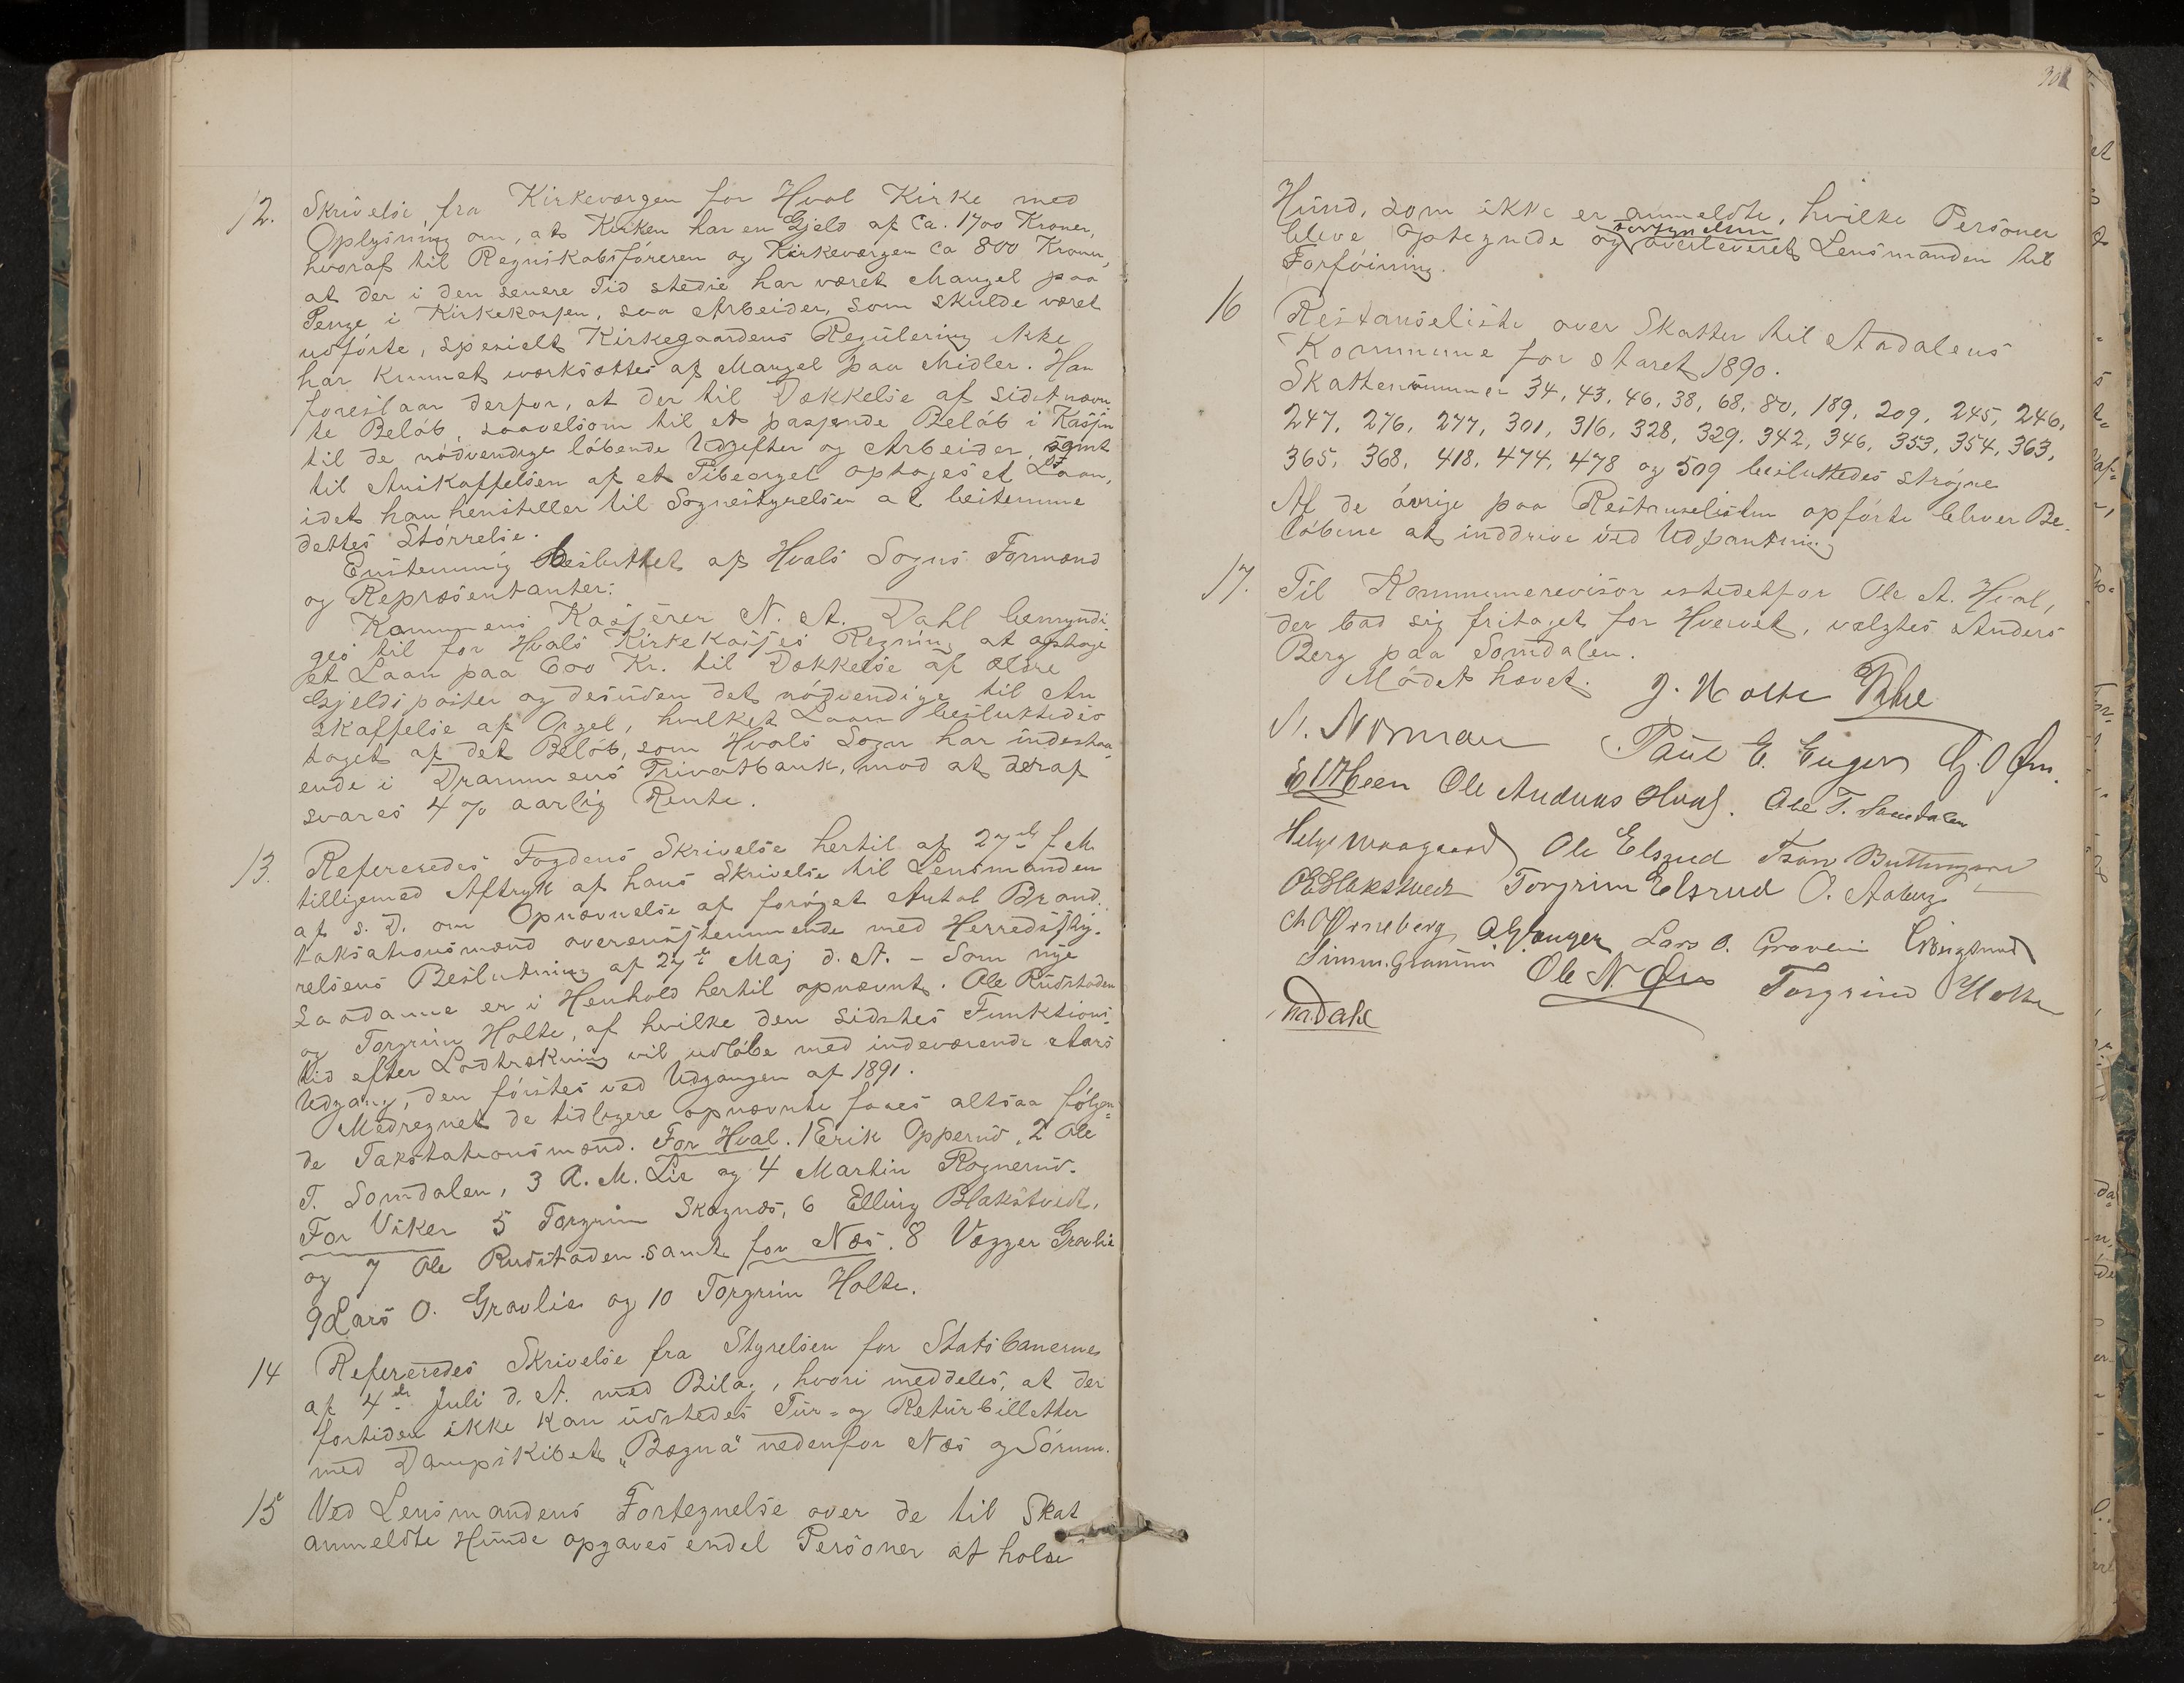 12. Skrivelse fra Kirkeværgen for Hval Kirke med
Oplysning om, at Kirken har en Gjeld af Ca. 1700 Kroner,
hvoraf til Regnskabsføreren og Kirkeværgen Ca 800 Kroner,
at der i den senere Tid stedse har været Mangel paa
Penge i Kirkekassen, saa Arbeider, som skulde været
udførte, specielt Kirkegaardens Regulering ikke
har kunnet iværksættes af Mangel paa Midler. Han
foreslaar derfor, at der til Dækkelse af sidstnævn
te Beløb, saavelsom til et passende Beløb i Kassen
til de nødvendige løbende Udgifter og Arbeider, samt
til Anskaffelsen af et Pibeorgel optages et Laan,
idet han henstiller til Sognestyrelsen at bestemme
dettes Størrelse.
Enstemmig besluttet af Hvals Sogns Formænd
og Repræsentanter:
Kommunens Kasserer N. A. Dahl bemyndi
ges til for Hvals Kirkekasses Regning at optage
et Laan paa 600 Kr. til Dækkelse af ældre
Gjeldsposter og desuden det nødvendige til An
skaffelse af Orgel, hvilket Laan besluttedes
taget af det Beløb, som Hvals Sogn har indestaa
ende i Drammens Privatbank, mod at deraf
svares 4 % aarlig Rente.
13. Refereredes Fogdens Skrivelse hertil af 27de f. M.
tilligemed Aftryk af hans Skrivelse til Lensmanden
af s. D. om Opnævnelse af forøget Antal Brand
taksationsmænd overensstemmende med Herredsty-
relsens Beslutning af 27de Maj d. A. - Som nye
Saadanne er i Henhold hertil opnævnt. Ole Rudstaden
og Torgrim Holte, af hvilke den sidstes Funktions-
tid efter Lodtrækning vil udløbe med indeværende Aars
Udgang, den førstes ved Udgangen af 1891.
Medregnet de tidligere opnævnte faaes altsaa følgen=
de Takstationsmænd. For Hval. 1 Erik Opperud, 2 Ole
T. Somdalen, 3 A. M. Lie og 4 Martin Rognerud.
For Viker 5 Torgrim Skagnæs, 6 Elling Blakstvedt,
og 7 Ole Rudstaden samt for Næs. 8 Vegger Gravlie
9 Lars O. Gravlie og 10 Torgrim Holte.
14 Refereredes Skrivelse fra Styrelsen for Statsbanerne
af 4de Juli d. A. med Bilag, hvori meddeles, at der
fortiden ikke kan udstedes Tur- og Returbilletter
med Dampskibet „Bægna" nedenfor Næs og Sørum.
15 Ved Lensmandens Fortegnelse over de til Skat
anmeldte Hunde opgaves endel Personer at holde
301
Hund, som ikke er anmeldte, hvilke Personer
fortegnelsen
bleve optegnede og overleveret Lensmanden til
Forføining.
16 Restanseliste over Skatter til Aadalens
Kommune for Aaret 1890.
Skattenummer 34, 43, 46, 38, 68, 80, 189, 209, 245, 246,
247, 276, 277, 301, 316, 328, 329, 342, 346, 353, 354, 363,
365, 368, 418, 474, 478 og 509 besluttedes strøgne
Af de øvrige paa Restanselisten opførte bliver Be-
løbene at inddrive ved Udpantning
17. Til Kommunerevisor istedetfor Ole A. Hval,
der bad sig fritaget for Hvervet, valgtes Anders
Berg paa Somdalen.
Mødet hævet. J. Holte
N. Norman Paul E. Enger
Ole Andreas Hval. Ole T. Somdalen
Helge Ole Elsrud
Torgrim Elsrud O. Aaberg
Lars O. Gravlie
Ole N. Torgrim Holte
N.A. Dahl